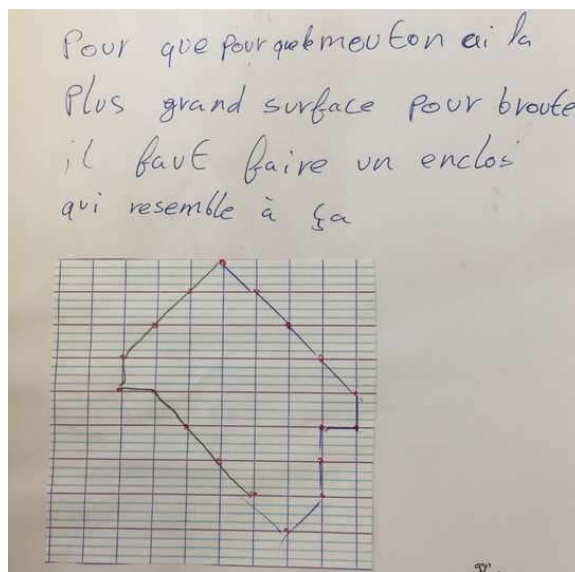 Pour que pour que le mouton ai la
Plus grand surface pour broute
il faut faire un enclos
qui resemble à ça